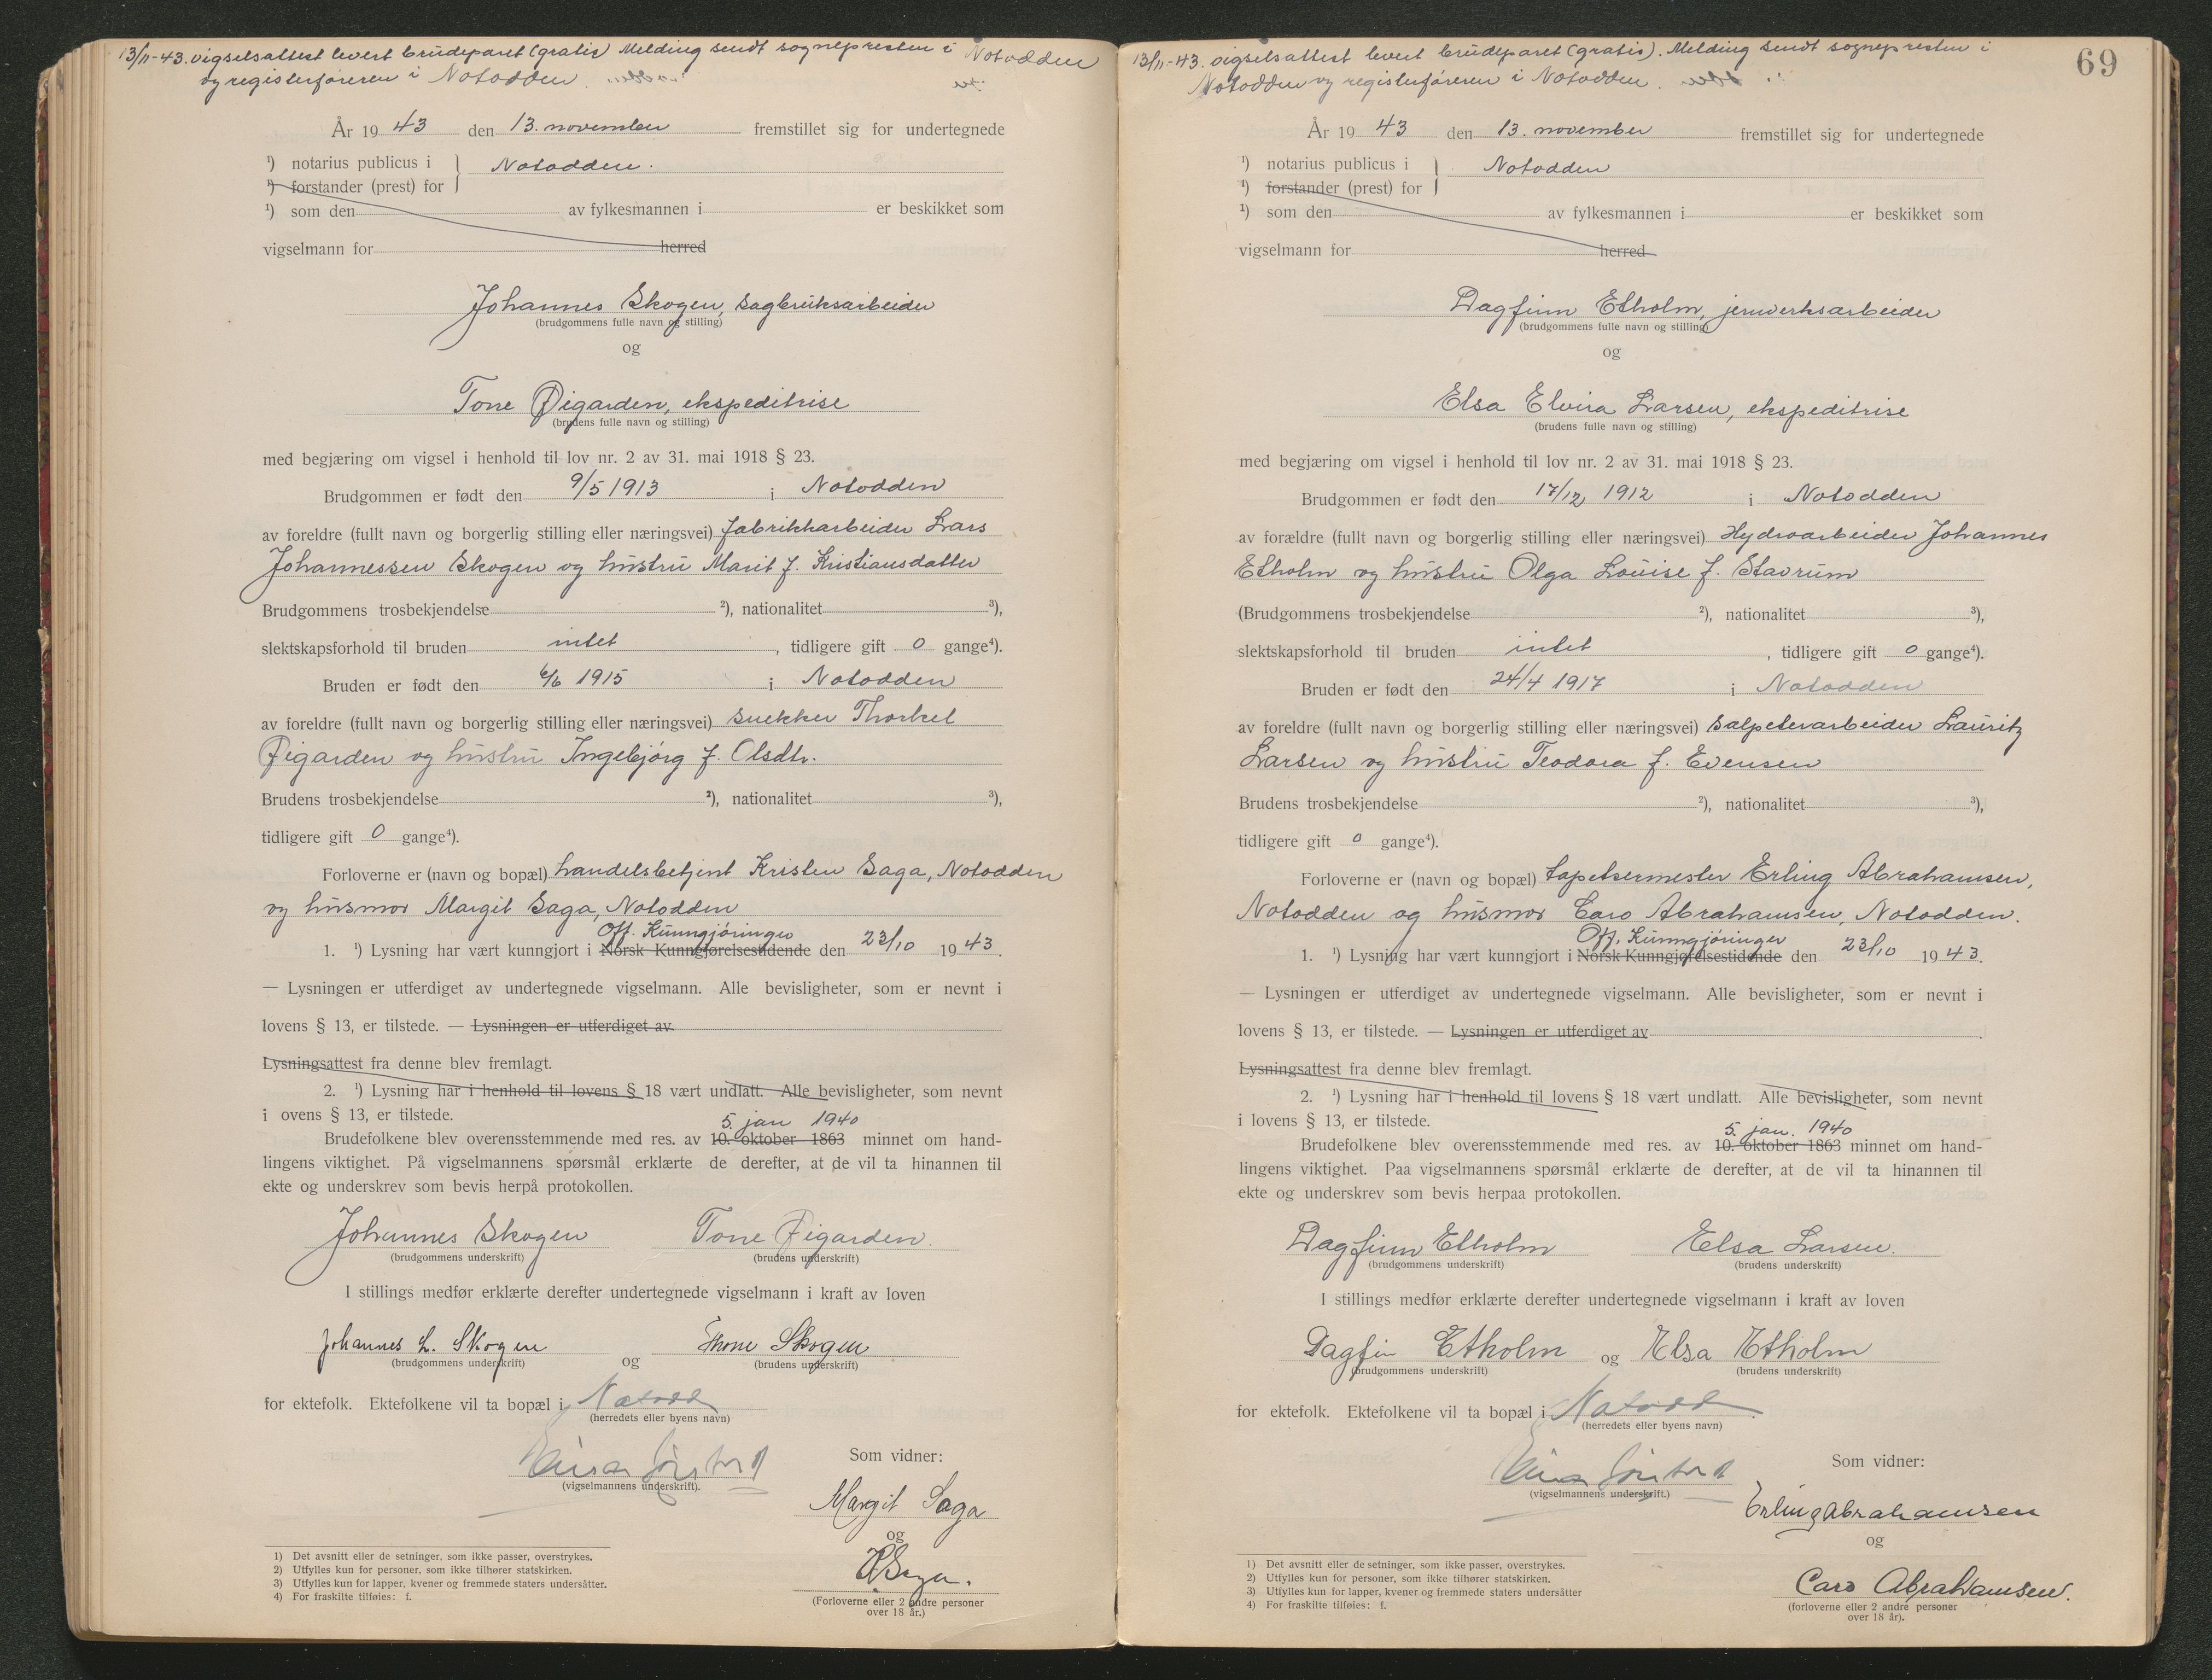 13/11-43. vigselsattest levert brudeparet (gratis) Melding sendt sognepresten i Notodden
og registerføreren i Notodden.
År 19 43 den 13. november fremstillet sig for undertegnede
¹) notarius publicus i } Notodden.
¹) forstander (prest) for
¹) som den av fylkesmannen i er beskikket som
vigselmann for herred
Johannes Skogen, sagbruksarbeider
(brudgommens fulle navn og stilling)
og
Tone Øigarden, ekspeditrise
(brudens fulle navn og stilling)
med begjæring om vigsel i henhold til lov nr. 2 av 31. mai 1918 § 23.
Brudgommen er født den 9/5 1913 i Notodden
av foreldre (fullt navn og borgerlig stilling eller næringsvei) fabrikkarbeider Lars
Johannessen Skogen og hustru Marit f. Kristiansdatter
Brudgommens trosbekjendelse ²), nationalitet ³),
slektskapsforhold til bruden intet, tidligere gift 0 gange⁴).
Bruden er født den 6/6 1915 i Notodden
av foreldre (fullt navn og borgerlig stilling eller næringsvei) snekker Thorkel
Øigarden og hustru Ingebjørg f. Olsdtr.
Brudens trosbekjendelse ²), nationalitet ³),
tidligere gift 0 gange⁴).
Forloverne er (navn og bopæl) handelsbetjent Kristen Saga, Notodden
og husmor Margit Saga, Notodden
Off. Kunngjøringer
1. ¹) Lysning har vært kunngjort i Norsk Kunngjørelsestidende den 23/10 19 43.
— Lysningen er utferdiget av undertegnede vigselmann. Alle bevisligheter, som er nevnt i
lovens § 13, er tilstede. — Lysningen er utferdiget av
Lysningsattest fra denne blev fremlagt.
2. ¹) Lysning har i henhold til lovens § 18 vært undlatt. Alle bevisligheter, som nevnt
i ovens § 13, er tilstede.
5. jan 1940
Brudefolkene blev overensstemmende med res. av 10. oktober 1863 minnet om hand-
lingens viktighet. På vigselmannens spørsmål erklærte de derefter, at de vil ta hinannen til
ekte og underskrev som bevis herpå protokollen.
Johannes Skogen Tone Øigarden.
(brudgommens underskrift) (brudens underskrift)
I stillings medfør erklærte derefter undertegnede vigselmann i kraft av loven
Johannes L. Skogen og Thone Skogen
(brudgommens underskrift) (brudens underskrift)
for ektefolk. Ektefolkene vil ta bopæl i Notodd
(herredets eller byens navn)
(vigselmannens underskrift).
Som vidner:
Margit Saga
og
K Saga.
(Forloverne eller 2 andre personer
over 18 år.)
1) Det avsnitt eller de setninger, som ikke passer, overstrykes.
2) Utfylles kun for personer, som ikke tilhører statskirken.
3) Utfylles kun for lapper, kvener og fremmede staters undersåtter.
4) For fraskilte tilføies: f.
69
13/11-43. vigselsattest levert brudeparet (gratis). Melding sendt sognepresten i
Notodden og registerføreren i Notodden.
År 19 43 den 13. november fremstillet sig for undertegnede
¹) notarius publicus i } Notodden
¹) forstander (prest) for
¹) som den av fylkesmannen i er beskikket som
vigselmann for herred
Dagfinn Etholm, jernverksarbeider
(brudgommens fulle navn og stilling)
og
Elsa Elvira Larsen, ekspeditrise
(brudens fulle navn og stilling)
med begjæring om vigsel i henhold til lov nr. 2 av 31. mai 1918 § 23.
Brudgommen er født den 17/12 1912 i Notodden
av forældre (fullt navn og borgerlig stilling eller næringsvei) Hydroarbeider Johannes
Etholm og hustru Olga Louise f. Stavrum
(Brudgommens trosbekjendelse ²), nationalitet ³),
slektskapsforhold til bruden intet, tidligere gift 0 gange⁴).
Bruden er født den 24/4 1917 i Notodden
av foreldre (fullt navn og borgerlig stilling eller næringsvei) salpeterarbeider Lauritz
Larsen og hustru Teodora f. Evensen
Brudens trosbekjendelse ²), nationalitet ³),
tidligere gift 0 gange⁴).
Forloverne er (navn og bopæl) tapetsermester Erling Abrahamsen,
Notodden og husmor Caro Abrahamsen, Notodden.
Off. Kunngjøringer
1. ¹) Lysning har vært kunngjort i Norsk Kunngjørelsestidende den 23/10 19 43.
— Lysningen er utferdiget av undertegnede vigselmann. Alle bevisligheter, som er nevnt i
lovens § 13, er tilstede. — Lysningen er utferdiget av
Lysningsattest fra denne blev fremlagt.
2. ¹) Lysning har i henhold til lovens § 18 vært undlatt. Alle bevisligheter, som nevnt
i lovens § 13, er tilstede.
5. jan. 1940
Brudefolkene blev overensstemmende med res. av 10. oktober 1863 minnet om hand-
lingens viktighet. Paa vigselmannens spørsmål erklærte de derefter, at de vil ta hinannen til
ekte og underskrev som bevis herpaa protokollen.
Dagfinn Etholm Elsa Larsen.
(brudgommens underskrift) (brudens underskrift)
I stillings medfør erklærte derefter undertegnede vigselmann i kraft av loven
Dagfin Etholm og Elsa Etholm
(brudgommens underskrift) (brudens underskrift)
for ektefolk. Ektefolkene vil ta bopæl i Notodd
(herredets eller byens navn)
(vigselmannens underskrift.)
Som vidner:
Erling Abrahamsen
og
Caro Abrahamsen.
(forloverne eller 2 andre personer
over 18 år).
1) Det avsnitt eller de setninger, som ikke passer, overstrykes.
2) Utfylles kun for personer, som ikke tilhører statskirken.
3) Utfylles kun for lapper, kvener og fremmede staters undersåtter
4) For fraskilte tilføies: f.